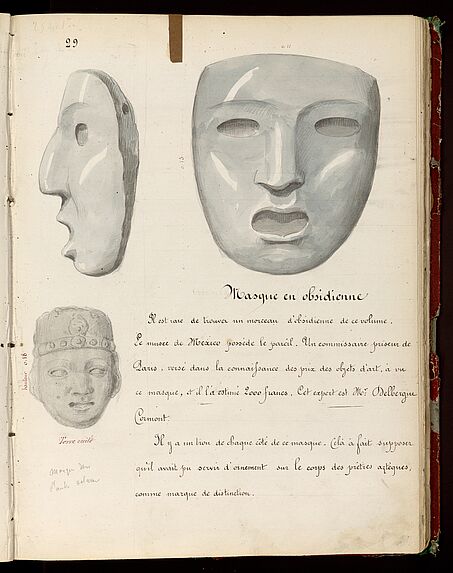 29
0.11
0.15
Masque en obsidienne
Il est rare de trouver un morceau d'obsidienne de ce volume.
Le musée de Mexico possède le pareil. Un commissaire priseur de
Paris, versé dans la connaissance des prix des objets d'art, a vu
ce masque, et il l'a estimé 2000 francs. Cet expert est Mr Delbergue
Cormont.
Il y a un trou de chaque côté de ce masque. Celà a fait supposer
qu'il avait pu servir d'ornement sur le corps des prêtres aztèques,
comme marque de distinction.
hauteur 0.16
Terre cuite